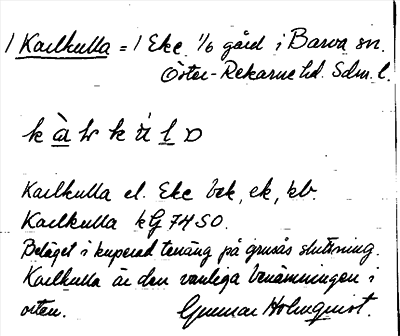 1 Karlkulla = 1 Eke 1/6 gård i Barva sn.
Öster-Rekarne hd. Sdm. l.
Karlkulla el. Eke bek, ek, kb.
Karlkulla kG 74 SO.
Beläget i kuperad teräng på grusås sluttning.
Karlkulla är den vanliga benämningen i
orten. Gunnar Holmqvist.